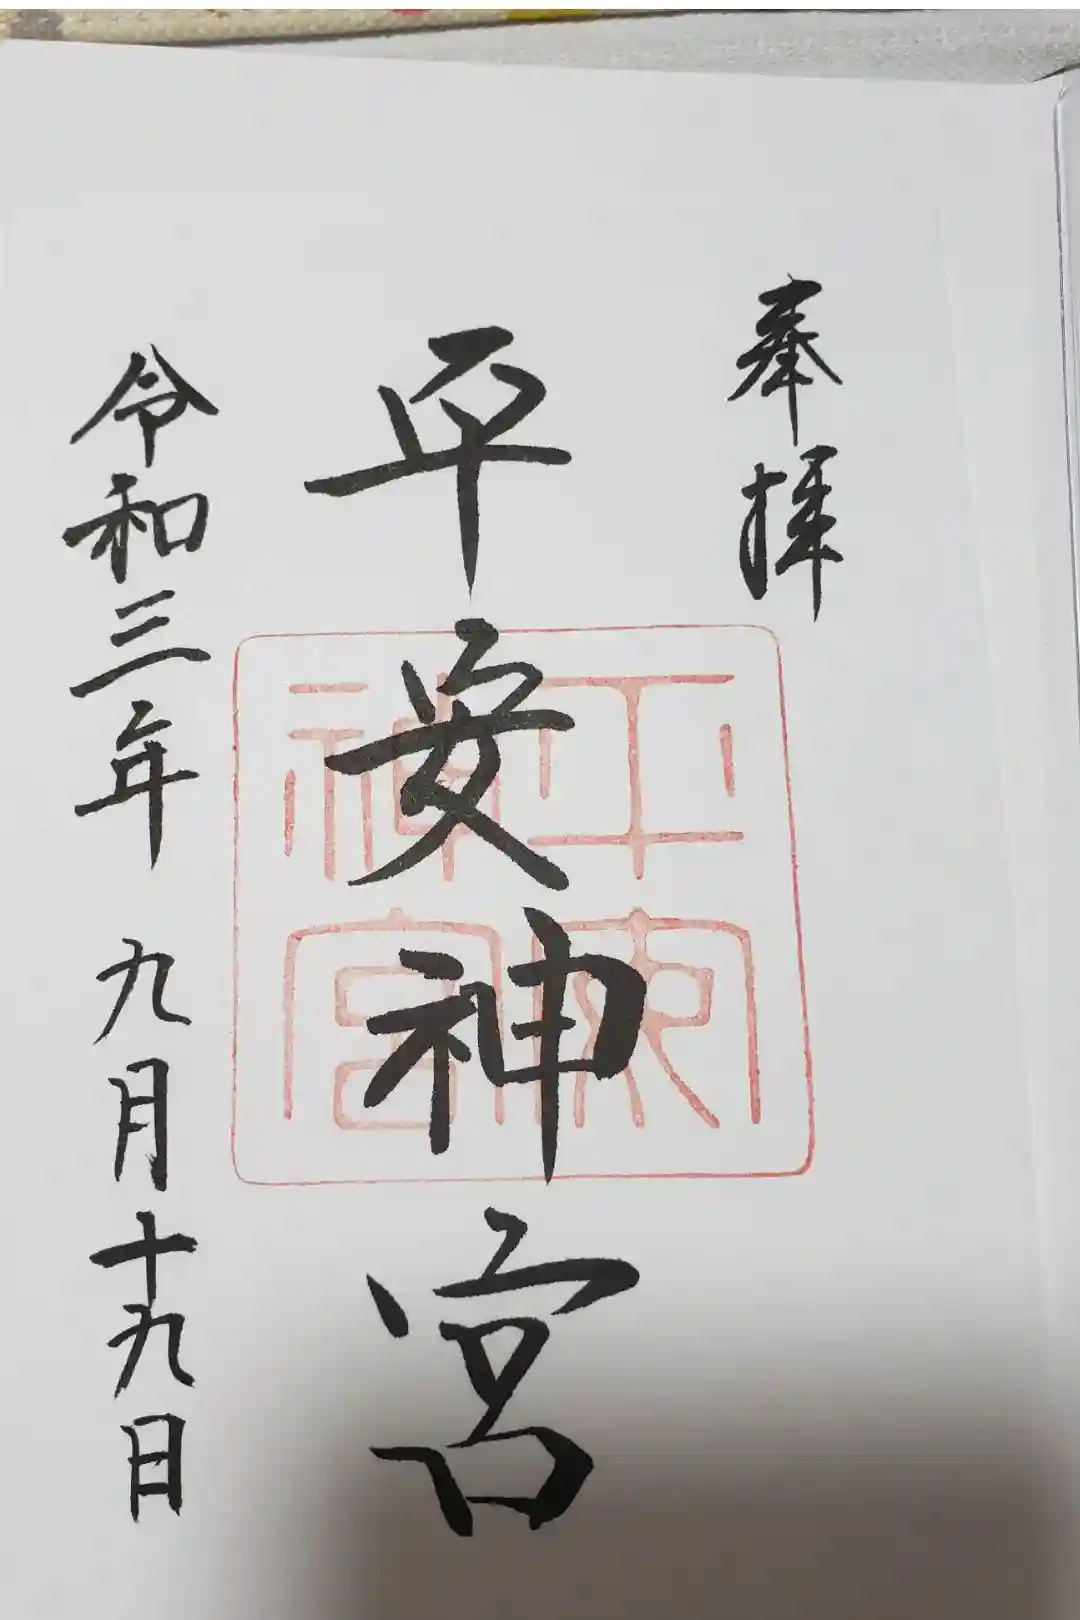 奉拝
平安神宮
平安神宮
令和三年 九月十九日